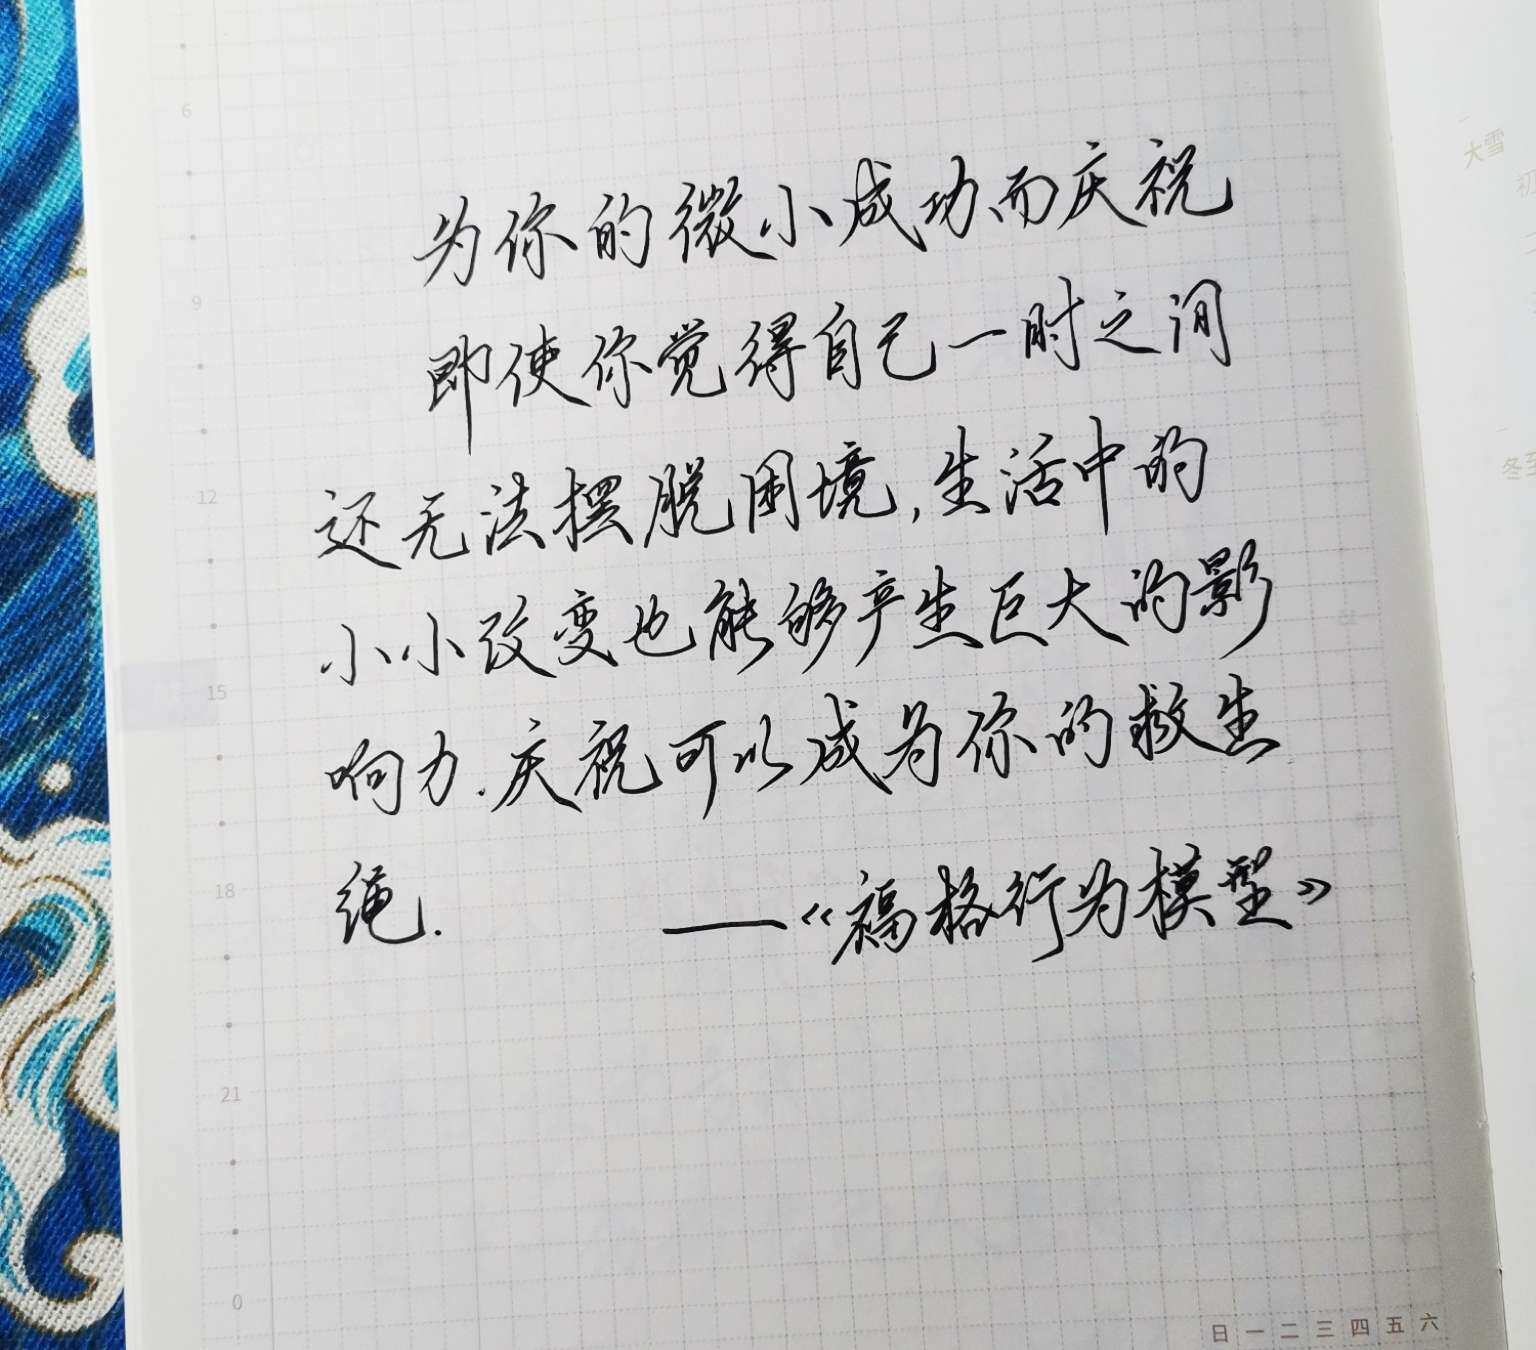 6
大雪
初
为你的微小成功而庆祝
9
即使你觉得自己一时之间
12
还无法摆脱困境,生活中的
小小改变也能够产生巨大的影
15
响力.庆祝可以成为你的救生
18
绳. ——《福格行为模型》
21
0
日 一 二 三 四 五 六